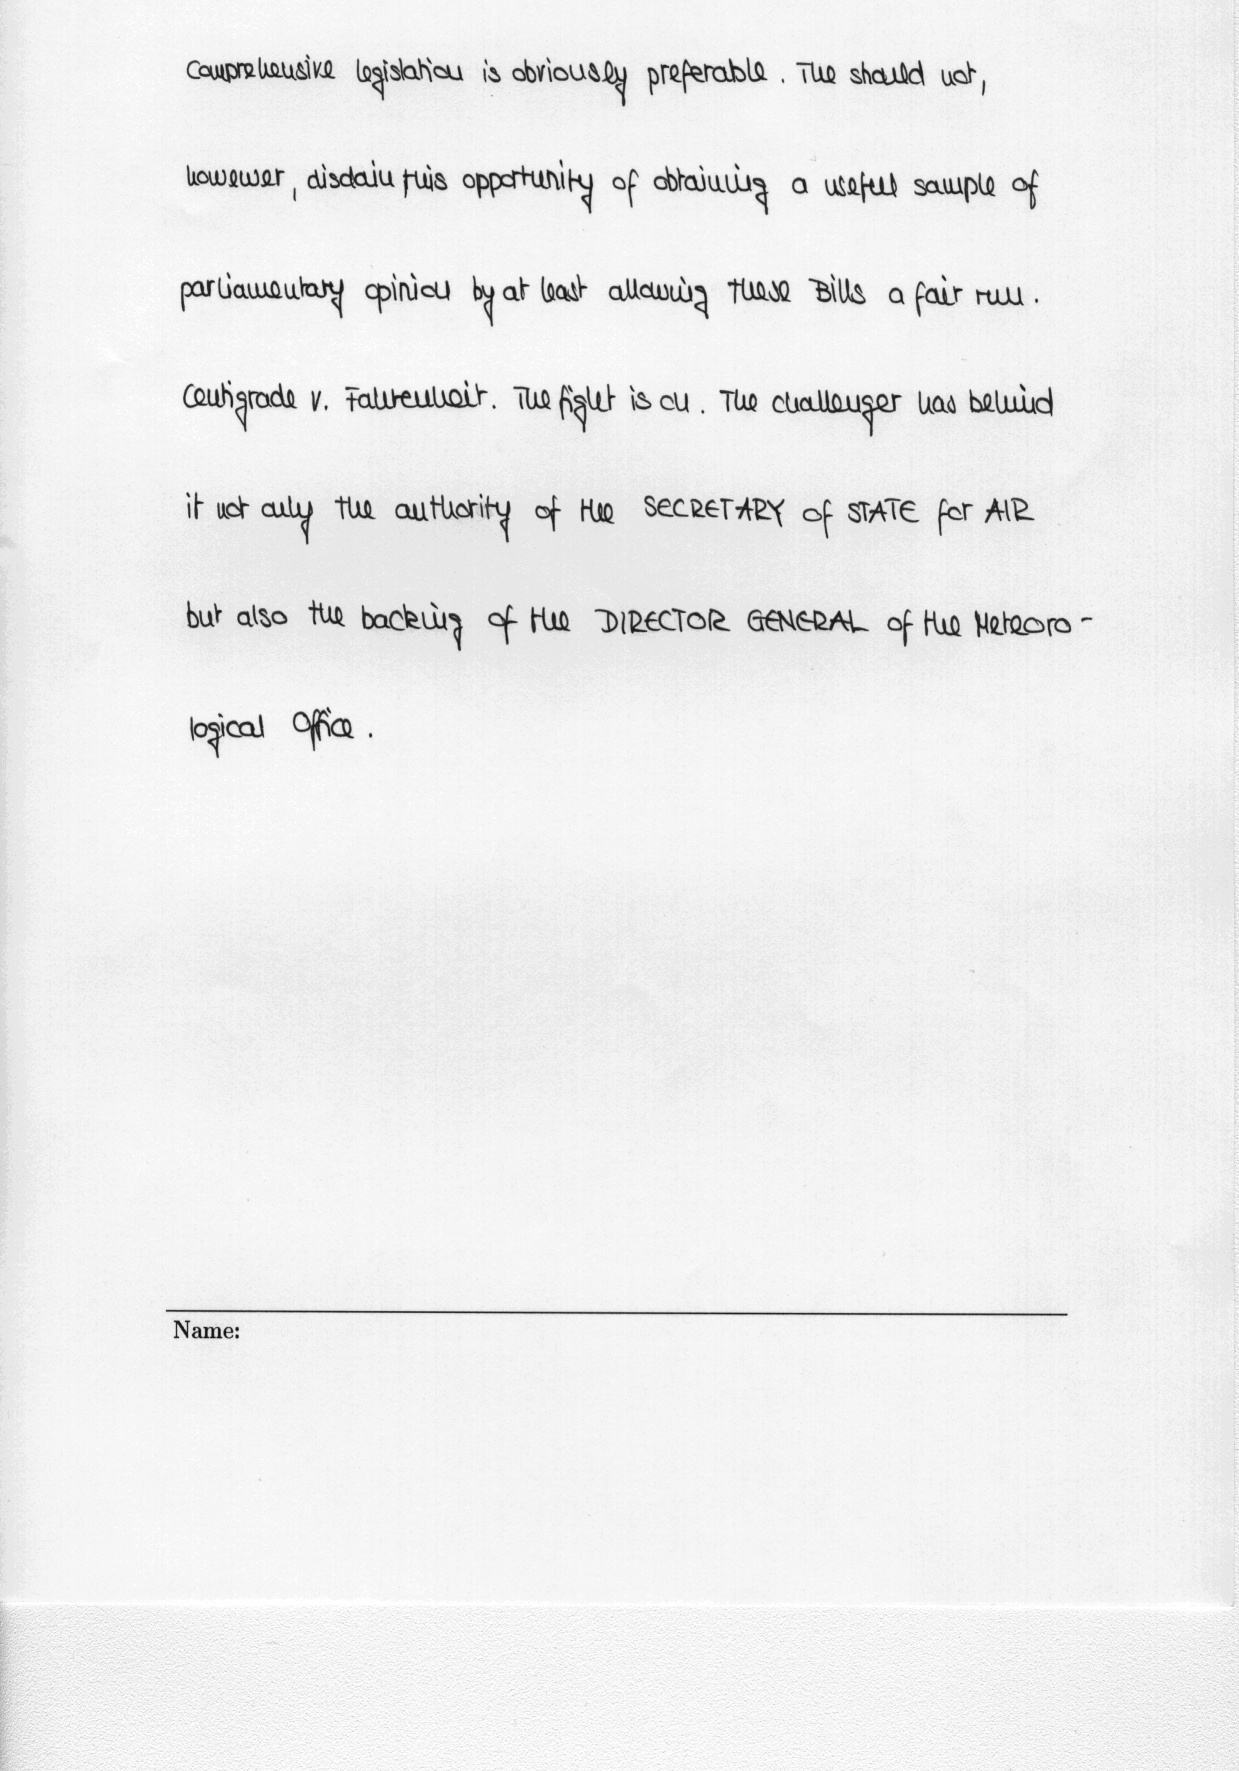 Comprehensive legislation is obviously preferable. The should not,
however, disdain this opportunity of obtaining a useful sample of
parliamentary opinion by at least allowing these Bills a fair run.
Centigrade v. Fahrenheit. The fight is on. The challenger has behind
it not only the authority of the SECRETARY of STATE for AIR
but also the backing of the DIRECTOR GENERAL of the Meteoro-
logical Office.
Name: